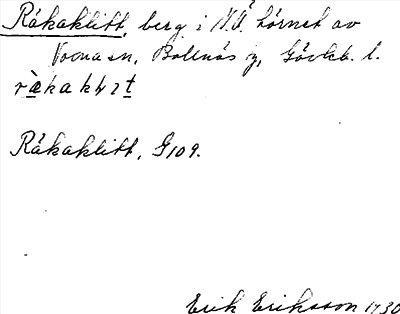 Råkaklitt, berg i N.V. hörnet av
Voxna sn, Bollnäs tg, Gävleb. l.
Råkaklitt, G109.
Erik Eriksson 1930